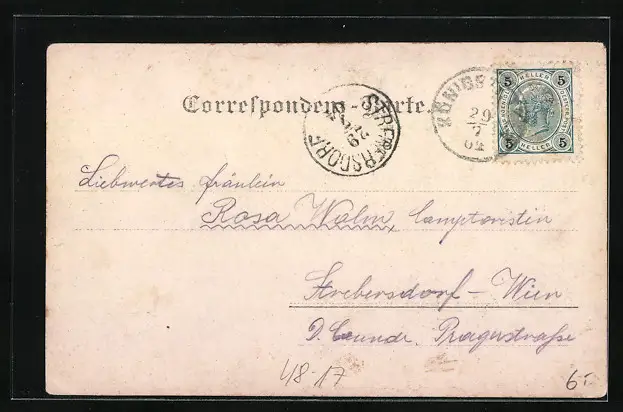 Correspondenz-Karte.
STREBERSDORF
KÖNIGS
29
7
02
5 HELLER 5
5 HELLER 5
Liebwertes Fräulein
Rosa Walm, Comptoristin
Strebersdorf – Wien
Pragerstraße
48-17
6-